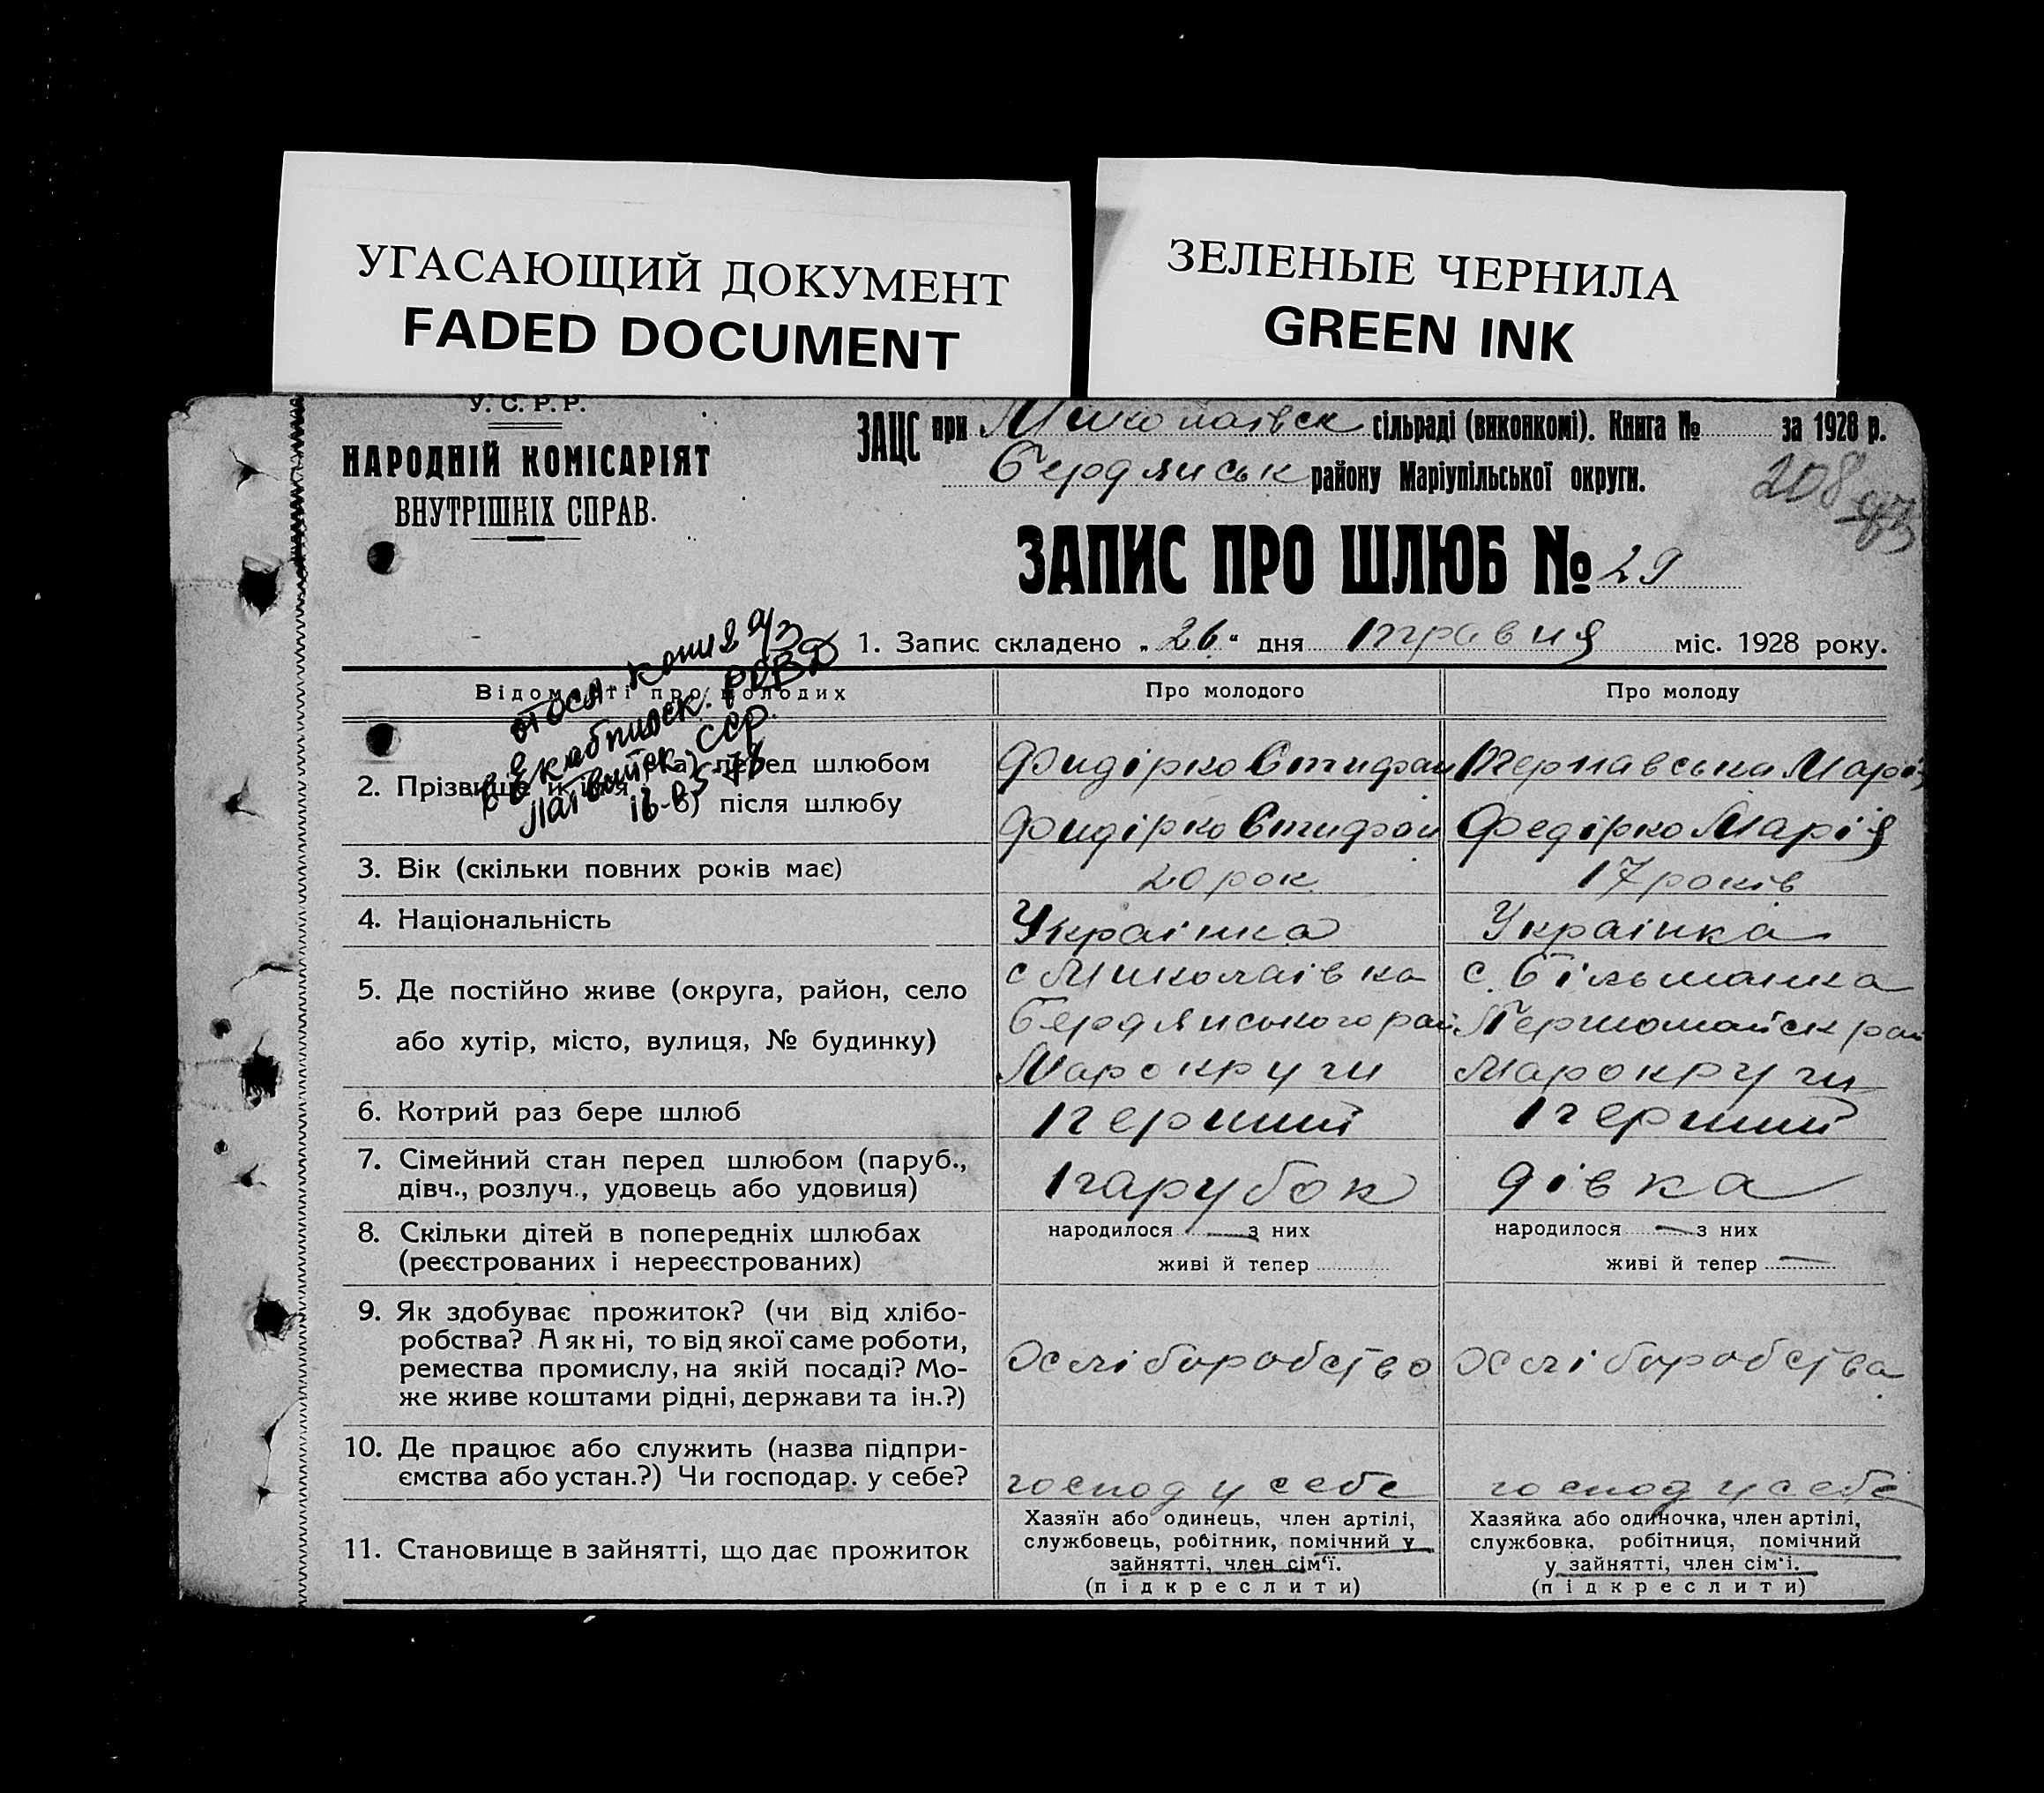 УГАСАЮЩИЙ ДОКУМЕНТ
FADED DOCUMENT
ЗЕЛЕНЫЕ ЧЕРНИЛА
GREEN INK
У. С. Р. Р.
НАРОДНІЙ КОМІСАРІЯТ
ВНУТРІШНІХ СПРАВ.
ЗАЦС при Миколаївск сільраді (виконкомі). Книга № за 1928 р.
Бердянськ району Маріупільської округи.
208
ЗАПИС ПРО ШЛЮБ № 29
1. Запис складено „26" дня травня міс. 1928 року.
Відомості про молодих
Про молодого
Про молоду
2. Прізвище й ім'я
а) перед шлюбом
Фидірко Стифан
Тернавська Марія
б) після шлюбу
Фидірко Стифан
Федірко Марія
3. Вік (скільки повних років має)
20 рок
17 років
4. Національність
Україніка
Українка
5. Де постійно живе (округа, район, село
або хутір, місто, вулиця, № будинку)
с Миколаівка
Бердянського рай
Марокруги
с. Більманка
Першомайск рай
Марокруги
6. Котрий раз бере шлюб
перший
перший
7. Сімейний стан перед шлюбом (паруб.,
дівч., розлуч., удовець або удовиця)
парубок
дівка
8. Скільки дітей в попередніх шлюбах
(реєстрованих і нереєстрованих)
народилося — з них
живі й тепер
народилося — з них
живі й тепер —
9. Як здобуває прожиток? (чи від хлібо-
робства? А як ні, то від якої саме роботи,
ремества промислу, на якій посаді? Мо-
же живе коштами рідні, держави та ін.?)
Хліборобство
Хліборобства
10. Де працює або служить (назва підпри-
ємства або устан.?) Чи господар. у себе?
господ у себе
господ у себе
11. Становище в зайнятті, що дає прожиток
Хазяїн або одинець, член артілі,
службовець, робітник, помічний у
зайнятті, член сім'ї.
(підкреслити)
Хазяйка або одиночка, член артілі,
службовка, робітниця, помічний
у зайнятті, член сім'ї.
(підкреслити)